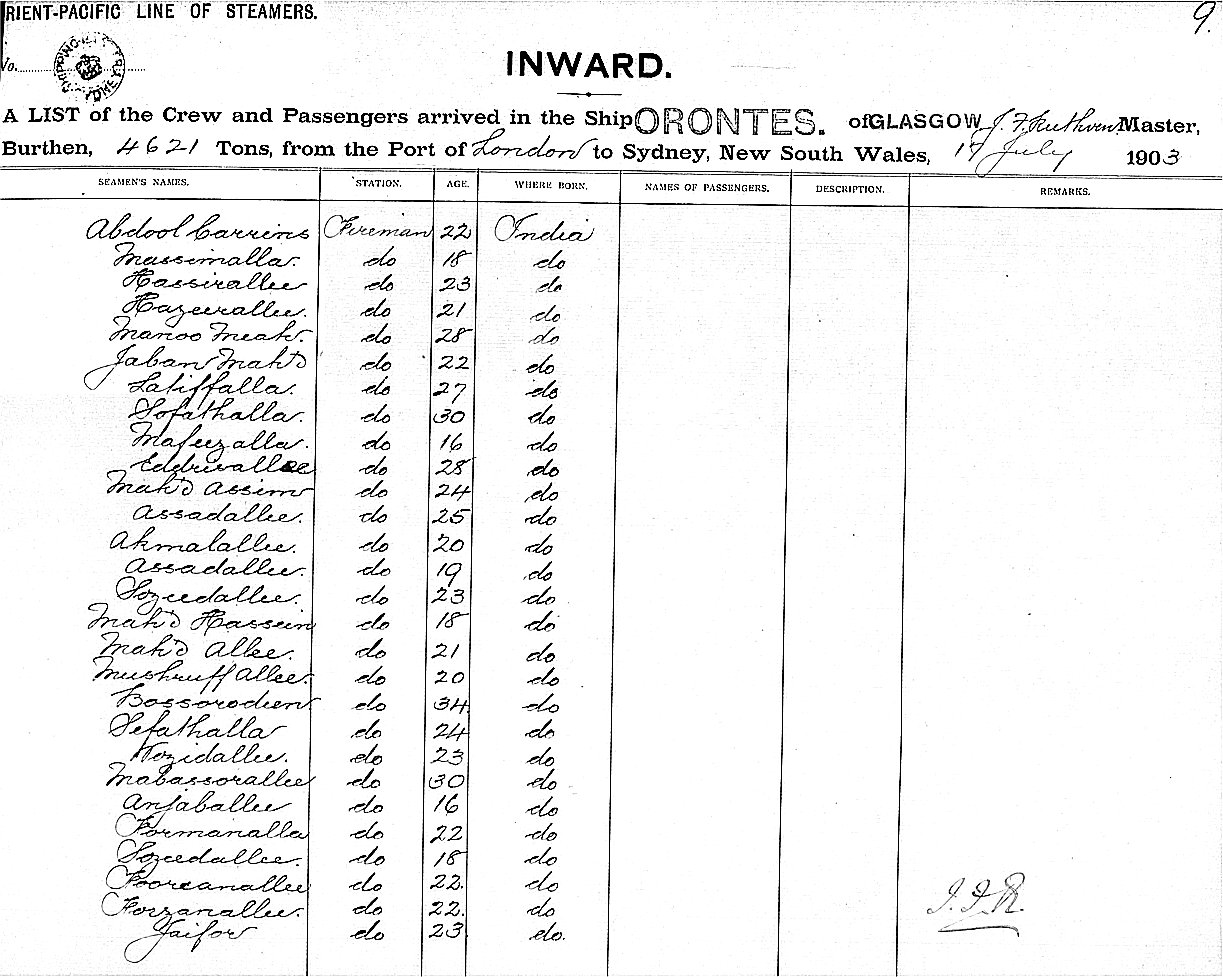 RIENT-PACIFIC LINE OF STEAMERS.
9.
No.
INWARD.
A LIST of the Crew and Passengers arrived in the Ship ORONTES. of GLASGOW J. F. Ruthven Master,
Burthen, 4621 Tons, from the Port of London to Sydney, New South Wales, 17 July 1903
SEAMEN'S NAMES. STATION. AGE. WHERE BORN. NAMES OF PASSENGERS. DESCRIPTION. REMARKS.
Abdool Carrims Fireman 22 India
Massimalla. do 18 do
Hassirallee do 23 do
Hazeerallee. do 21 do
Manoo Meah. do 28 do
Jaban Mah'd do 22 do
Latiffalla. do 27 do
Sofathalla. do 30 do
Mafeezalla. do 16 do
Eddrivallee do 28 do
Mah'd Assim do 24 do
Assadallee. do 25 do
Akmalallee. do 20 do
Assadallee. do 19 do
Sozeedallee. do 23 do
Mah'd Hassein do 18 do
Mah'd Allee. do 21 do
Mushruff Allee. do 20 do
Bossorodien do 34 do
Sefathalla do 24 do
Wozidallee. do 23 do
Mabassorallee do 30 do
Anjaballee do 16 do
Formanalla do 22 do
Sozeedallee. do 18 do
Fooreanallee do 22. do
Forzanallee. do 22. do
Jaifor do 23 do.
J. F. R.